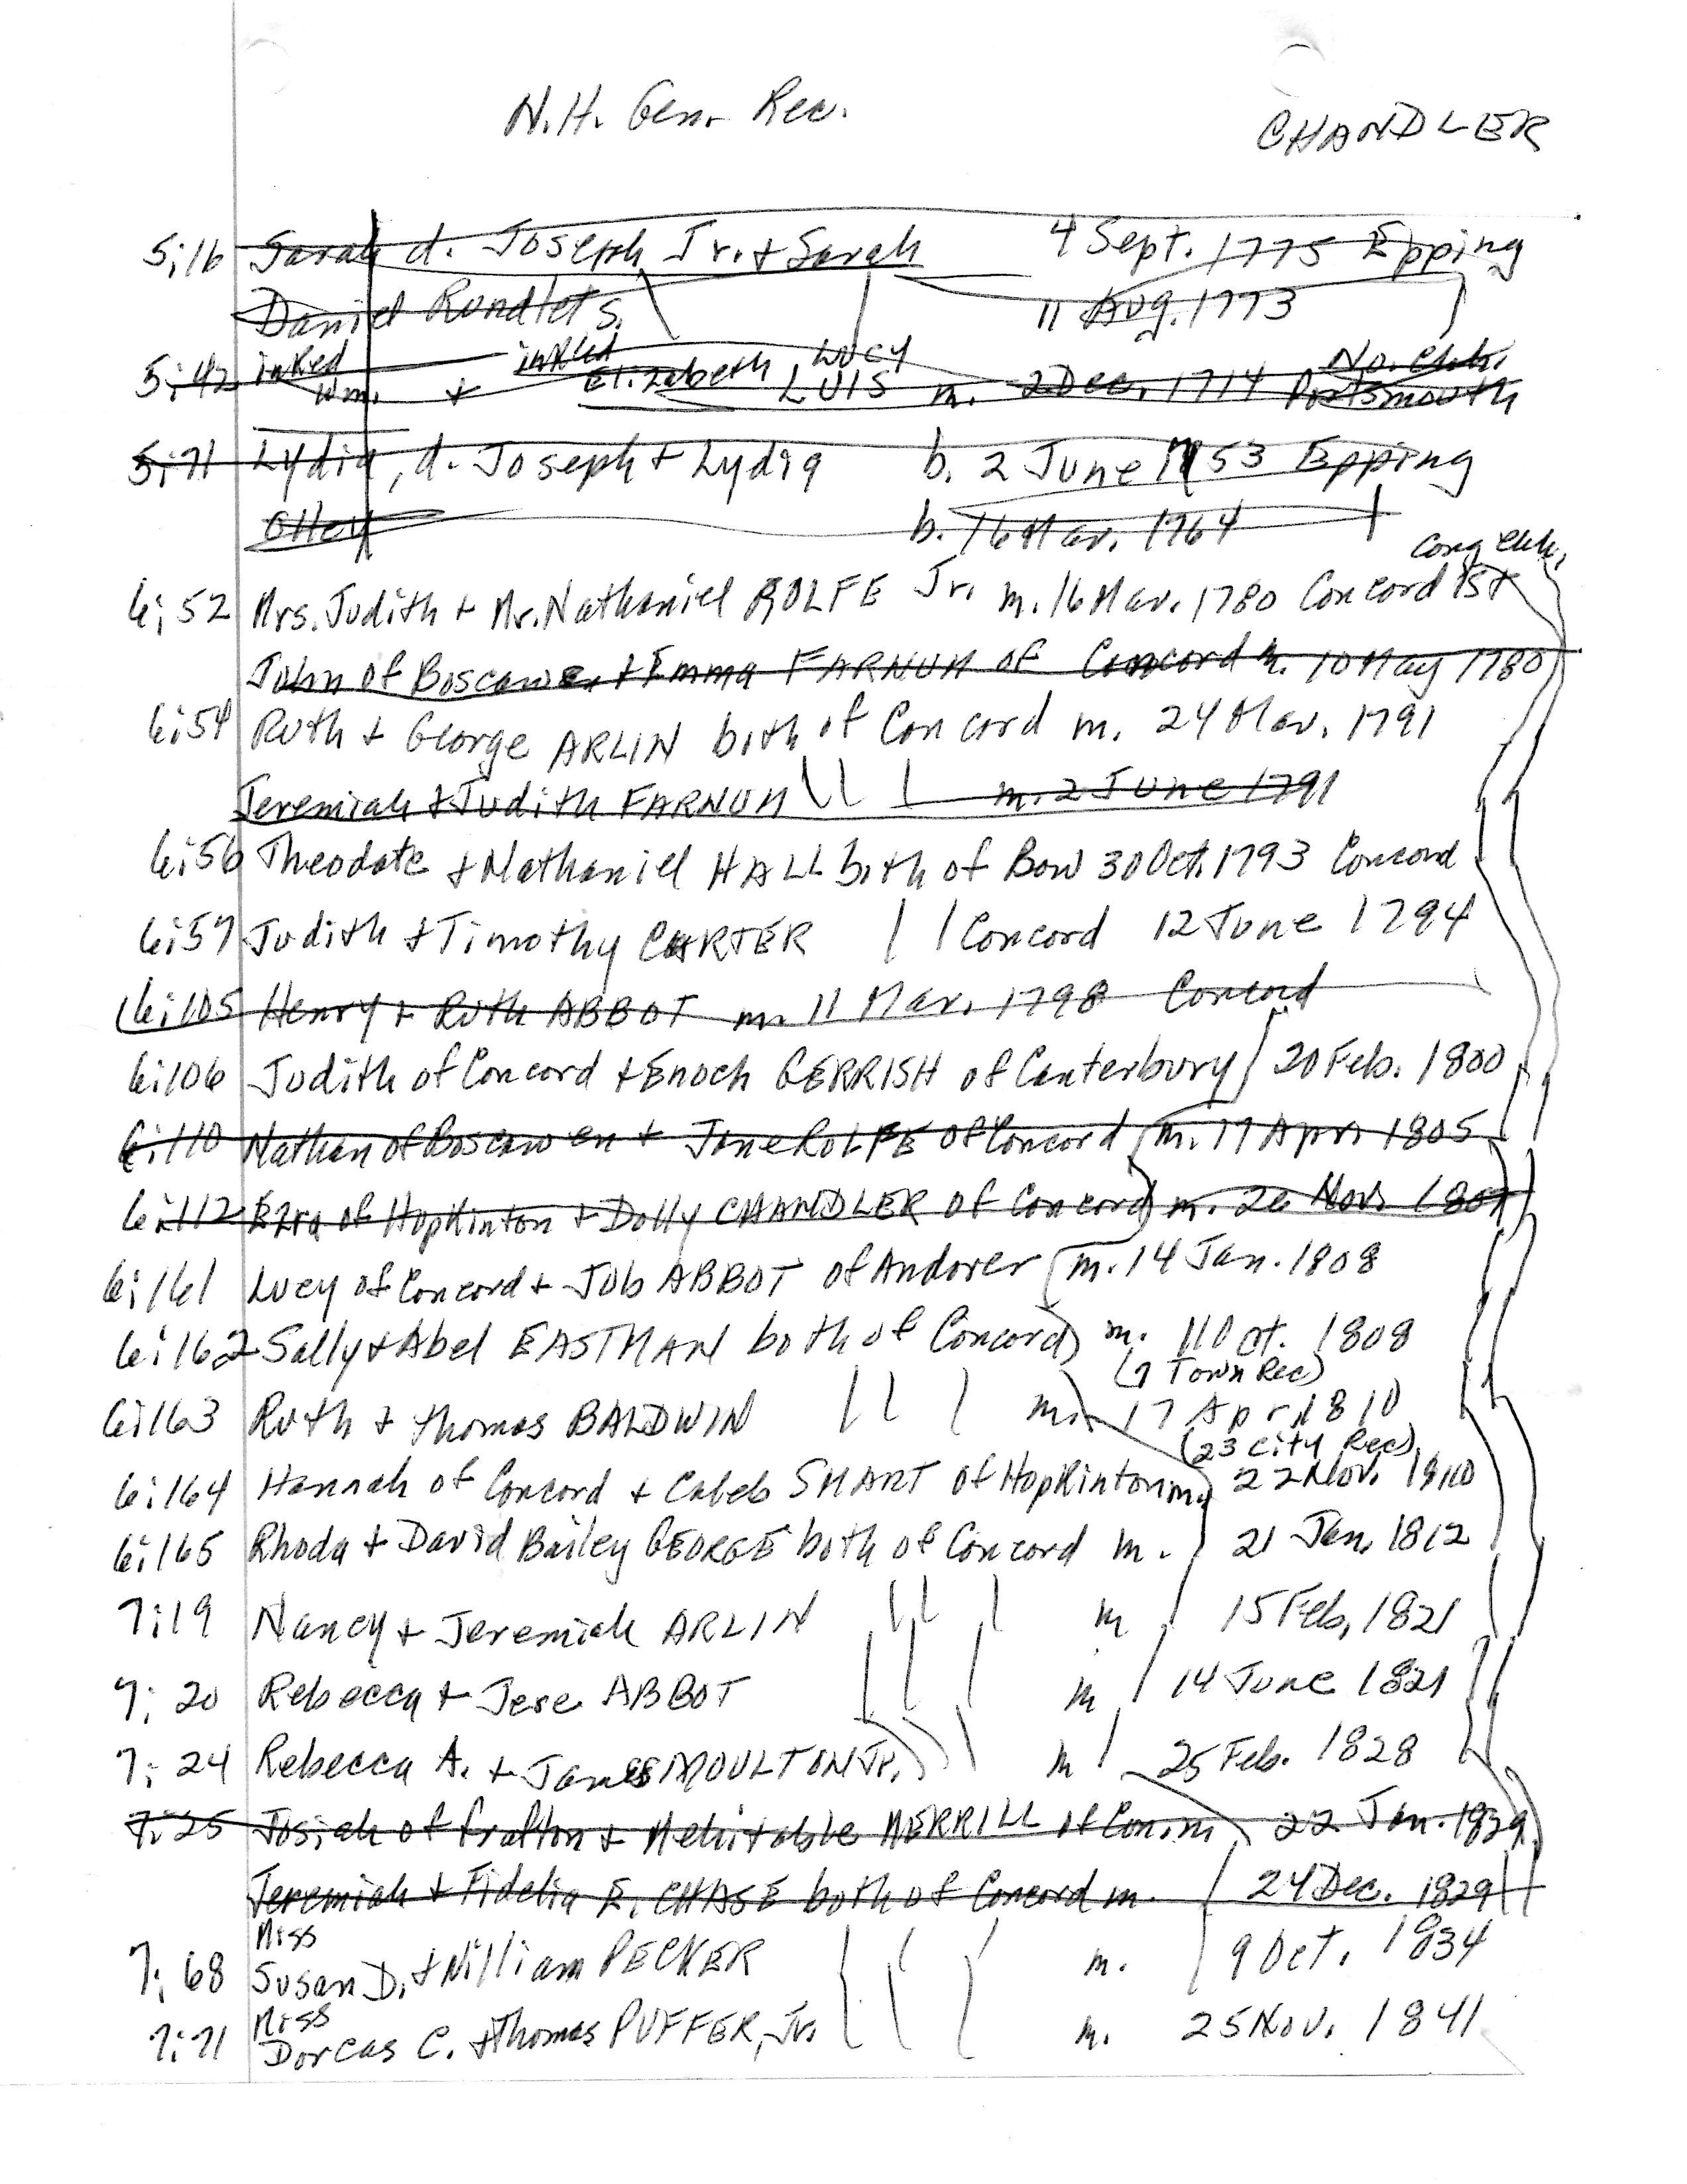 N.H. Gen. Rec.
CHANDLER
5:16 Sarah d. Joseph Jr. + Sarah 4 Sept. 1775 Epping
Daniel Rundlet s. 11 Aug. 1773
5:42 inked Wm. + inked Elizabeth LUCY LUIS m. 2 Dec. 1714 No. Chh. Portsmouth
5:71 Lydia, d. Joseph + Lydia b. 2 June 1753 Epping
b. 16 Mar. 1764
Cong Chh.
6:52 Mrs. Judith + Mr. Nathaniel ROLFE Jr. m. 16 Mar. 1780 Concord 1st
John of Boscawen + Emma FARNUM of Concord m. 10 May 1780
6:54 Ruth + George ARLIN both of Concord m. 24 Mar. 1791
Jeremiah + Judith FARNUM \ \ \ m. 2 June 1791
6:56 Theodate + Nathaniel HALL both of Bow 30 Oct. 1793 Concord
6:57 Judith + Timothy CARTER | | Concord 12 June 1794
6:105 Henry + Ruth ABBOT m. 11 Mar. 1798 Concord
6:106 Judith of Concord + Enoch GERRISH of Canterbury 20 Feb. 1800
6:110 Nathan of Boscawen + Jane ROLFE of Concord m. 17 Apr. 1805
6:112 Ezra of Hopkinton + Dolly CHANDLER of Concord m. 26 Nov. 1807
6:161 Lucy of Concord + Job ABBOT of Andover m. 14 Jan. 1808
6:162 Sally + Abel EASTMAN both of Concord m. 11 Oct. 1808
(7 Town Rec)
6:163 Ruth + Thomas BALDWIN | | | m. 17 Apr. 1810
(23 City Rec)
6:164 Hannah of Concord + Caleb SMART of Hopkinton m. 22 Nov. 1810
6:165 Rhoda + David Bailey GEORGE both of Concord m. 21 Jan. 1812
7:19 Nancy + Jeremiah ARLIN | | | m 15 Feb. 1821
7:20 Rebecca + Jese ABBOT | | | m 14 June 1821
7:24 Rebecca A. + James MOULTON Jr. | | | m 25 Feb. 1828
7:25 Josiah of Grafton + Mehitable MERRILL of Con. m 22 Jan. 1829
Jeremiah + Fidelia E. CHASE both of Concord m. 24 Dec. 1829
Miss
7:68 Susan D. + William PECKER | | | m. 9 Oct. 1834
Miss
7:71 Dorcas C. + Thomas PUFFER, Jr. | | | m. 25 Nov. 1841